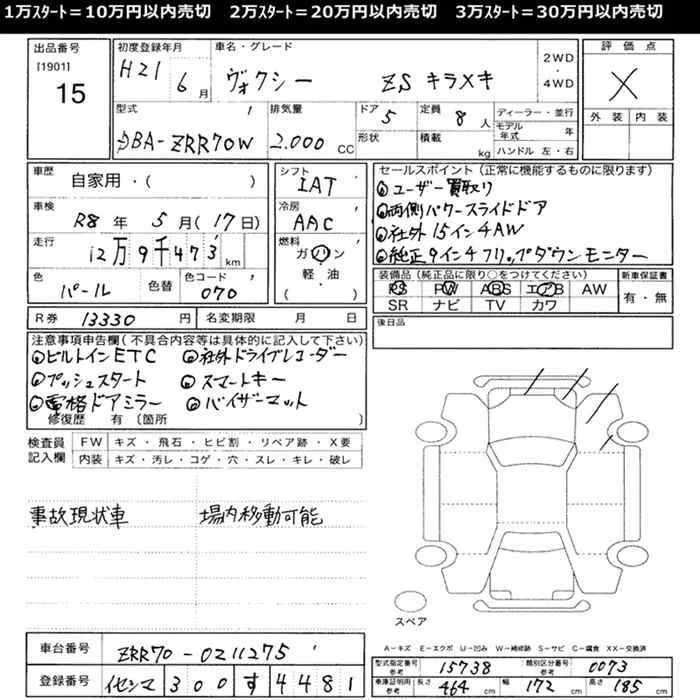 1万ｽﾀｰﾄ＝10万円以内売切　2万ｽﾀｰﾄ＝20万円以内売切　3万ｽﾀｰﾄ＝30万円以内売切
出品番号
[1901]
15
初度登録年月
H21 6月
車名・グレード
ヴォクシー ZS キラメキ
2WD
・
4WD
評価点
X
外装 内装
型式
DBA-ZRR70W
排気量
2.000 CC
ドア 5
形状
定員 8 人
積載 kg
ディーラー・並行
モデル年式 年
ハンドル 左・右
車歴
自家用・( )
車検
R8年 5月(17日)
走行
12万9千473km
色
パール
色替
色コード
070
シフト
IAT
冷房
AAC
燃料
ガソリン
軽・油
( )
セールスポイント(正常に機能するものに限ります)
◎ユーザー買取り
◎両側パワースライドドア
◎社外15インチAW
◎純正9インチフリップダウンモニター
装備品(純正品に限り○をつけてください)
PS PW ABS エアB AW
SR ナビ TV カワ
新車保証書
有・無
R券 13330円
名変期限 月 日
後日品
注意事項申告欄(不具合内容等は具体的に記入して下さい)
◎ビルトインETC ◎社外ドライブレコーダー
◎プッシュスタート ◎スマートキー
◎電格ドアミラー ◎バイザーマット
修復歴 有(箇所 )
検査員記入欄
FW キズ・飛石・ヒビ割・リペア跡・X要
内装 キズ・汚レ・コゲ・穴・スレ・キレ・破レ
事故現状車 場内移動可能
スペア
A－キズ E－エクボ U－凹み W－補修跡 S－サビ C－腐食 XX－交換済
車台番号
ZRR70-0211275
登録番号
イセシマ 300 す 4481
型式指定番号
参考
15738
類別区分番号
参考
0073
車庫証明用
参考
長さ 464 cm 幅 172 cm 高さ 185 cm